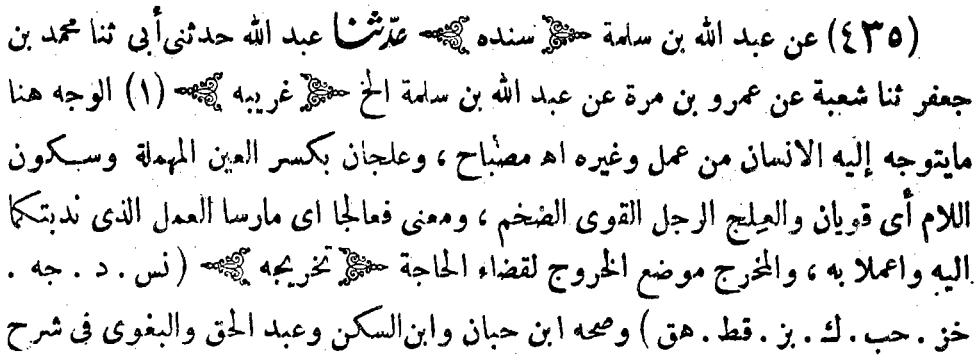 (٤٣٥) عن عبد الله بن سلمة ﴿ سنده ﴾ حدّثنا عبد الله حدثنى أبى ثنا محمد بن
جعفر ثنا شعبة عن عمرو بن مرة عن عبد الله بن سلمة الخ ﴿ غريبه ﴾ (١) الوجه هنا
مايتوجه إليه الانسان من عمل وغيره اهـ مصباح ، وعلجان بكسر العين المهملة وسكون
اللام أى قويان والعِلج الرجل القوى الضخم ، ومعنى فعالجا اى مارسا العمل الذى ندبتكما
اليه واعملا به ، والمخرج موضع الخروج لقضاء الحاجة ﴿ تخريجه ﴾ ( نس . د . جه .
خز . حب . ك . بز . قط . هق ) وصححه ابن حبان وابن السكن وعبد الحق والبغوى فى شرح